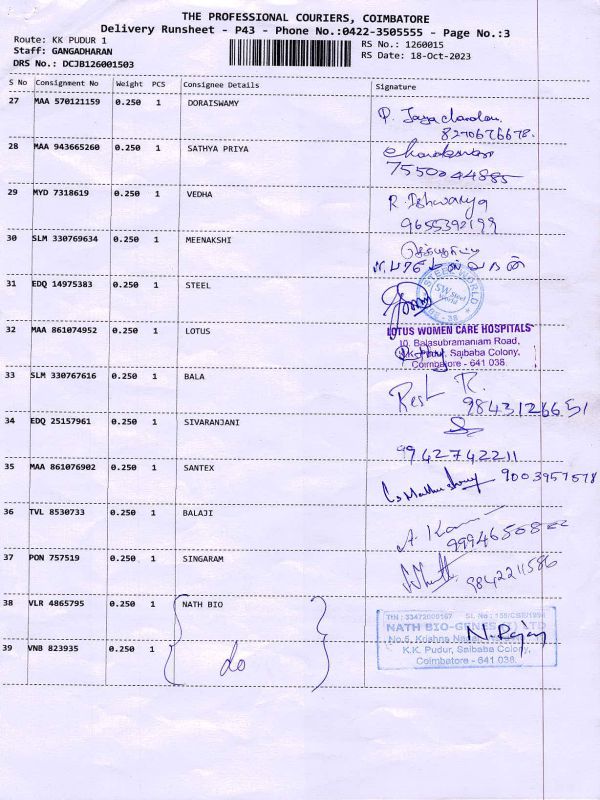 THE PROFESSIONAL COURIERS, COIMBATORE
Delivery Runsheet - P43 - Phone No.:0422-3505555 - Page No.:3
Route: KK PUDUR 1 RS No.: 1260015
Staff: GANGADHARAN RS Date: 18-Oct-2023
DRS No.: DCJB126001503
S No Consignment No Weight PCS Consignee Details Signature
27 MAA 570121159 0.250 1 DORAISWAMY
P. Jayachandran
8270676678.
28 MAA 943665260 0.250 1 SATHYA PRIYA
7550044885
29 MYD 7318619 0.250 1 VEDHA R. Ishwarya
9655392199
30 SLM 330769634 0.250 1 MEENAKSHI
31 EDQ 14975383 0.250 1 STEEL
STEEL WORLD
SW Steel
World
32 MAA 861074952 0.250 1 LOTUS LOTUS WOMEN CARE HOSPITALS
10, Balasubramaniam Road,
Saibaba Colony,
Coimbatore - 641 038.
33 SLM 330767616 0.250 1 BALA
R.
9843126651
34 EDQ 25157961 0.250 1 SIVARANJANI
9942742211
35 MAA 861076902 0.250 1 SANTEX 9003957578
36 TVL 8530733 0.250 1 BALAJI
37 PON 757519 0.250 1 SINGARAM 9842211586
38 VLR 4865795 0.250 1 NATH BIO
NATH BIO-GENES
N. Rajay
K.K. Pudur, Saibaba Colony,
Coimbatore - 641 038.
39 VNB 823935 0.250 1 do